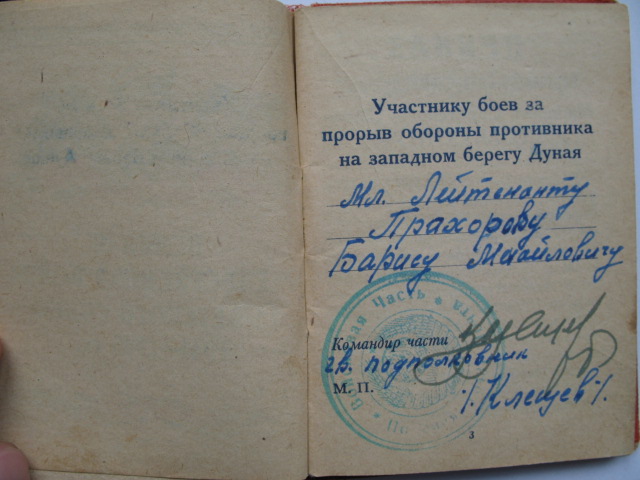 Участнику боев за
прорыв обороны противника
на западном берегу Дуная
Мл. Лейтенанту
Прахорову
Барису Михайловичу
Командир части
гв. подполковник
М. П.
/. Клещев /.
Полевая Часть
3